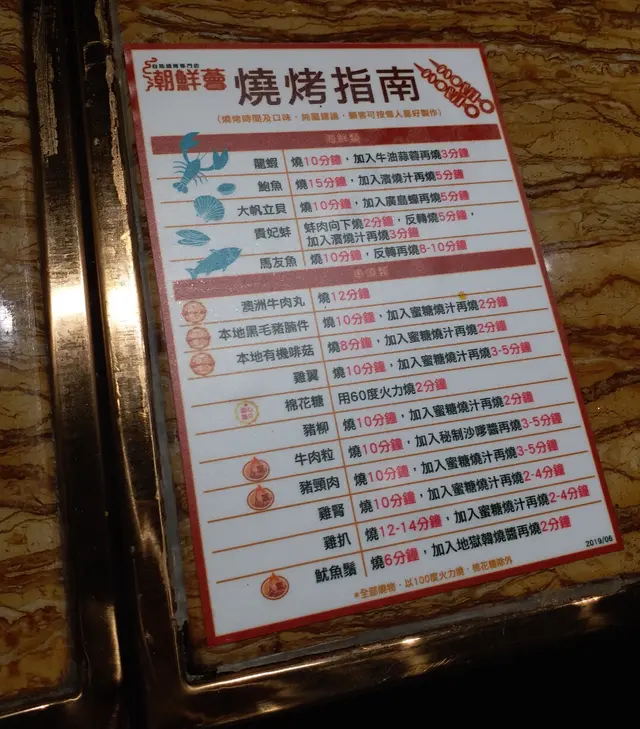 自助燒烤專門店
潮鮮薈
燒烤指南
(燒烤時間及口味，純屬建議，顧客可按個人喜好製作)
海鮮類
龍蝦 燒10分鐘，加入牛油蒜蓉再燒3分鐘
鮑魚 燒15分鐘，加入濱燒汁再燒5分鐘
大帆立貝 燒10分鐘，加入廣島蠔再燒5分鐘
貴妃蚌 蚌肉向下燒2分鐘，反轉燒5分鐘，
加入濱燒汁再燒3分鐘
馬友魚 燒10分鐘，反轉再燒8-10分鐘
串燒類
澳洲牛肉丸 燒12分鐘
本地黑毛豬腩件 燒10分鐘，加入蜜糖燒汁再燒2分鐘
本地有機啡菇 燒8分鐘，加入蜜糖燒汁再燒2分鐘
雞翼 燒10分鐘，加入蜜糖燒汁再燒3-5分鐘
棉花糖 用60度火力燒2分鐘
豬柳 燒10分鐘，加入蜜糖燒汁再燒2分鐘
牛肉粒 燒10分鐘，加入秘制沙嗲醬再燒3-5分鐘
豬頸肉 燒10分鐘，加入蜜糖燒汁再燒3-5分鐘
雞腎 燒10分鐘，加入蜜糖燒汁再燒2-4分鐘
雞扒 燒12-14分鐘，加入蜜糖燒汁再燒2-4分鐘
魷魚鬚 燒6分鐘，加入地獄韓燒醬再燒2分鐘
*全部燒物，以100度火力燒，棉花糖除外
2019/06